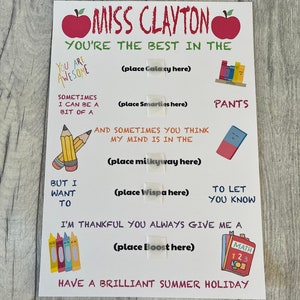 MISS CLAYTON
YOU'RE THE BEST IN THE
YOU ARE
AWESOME
(place Galaxy here)
SOMETIMES
I CAN BE A
BIT OF A
(place Smarties here)
PANTS
AND SOMETIMES YOU THINK
MY MIND IS IN THE
(place milkyway here)
BUT I
WANT
TO
(place Wispa here)
TO LET
YOU KNOW
I'M THANKFUL YOU ALWAYS GIVE ME A
(place Boost here)
MATH
1 2
3
HAVE A BRILLIANT SUMMER HOLIDAY